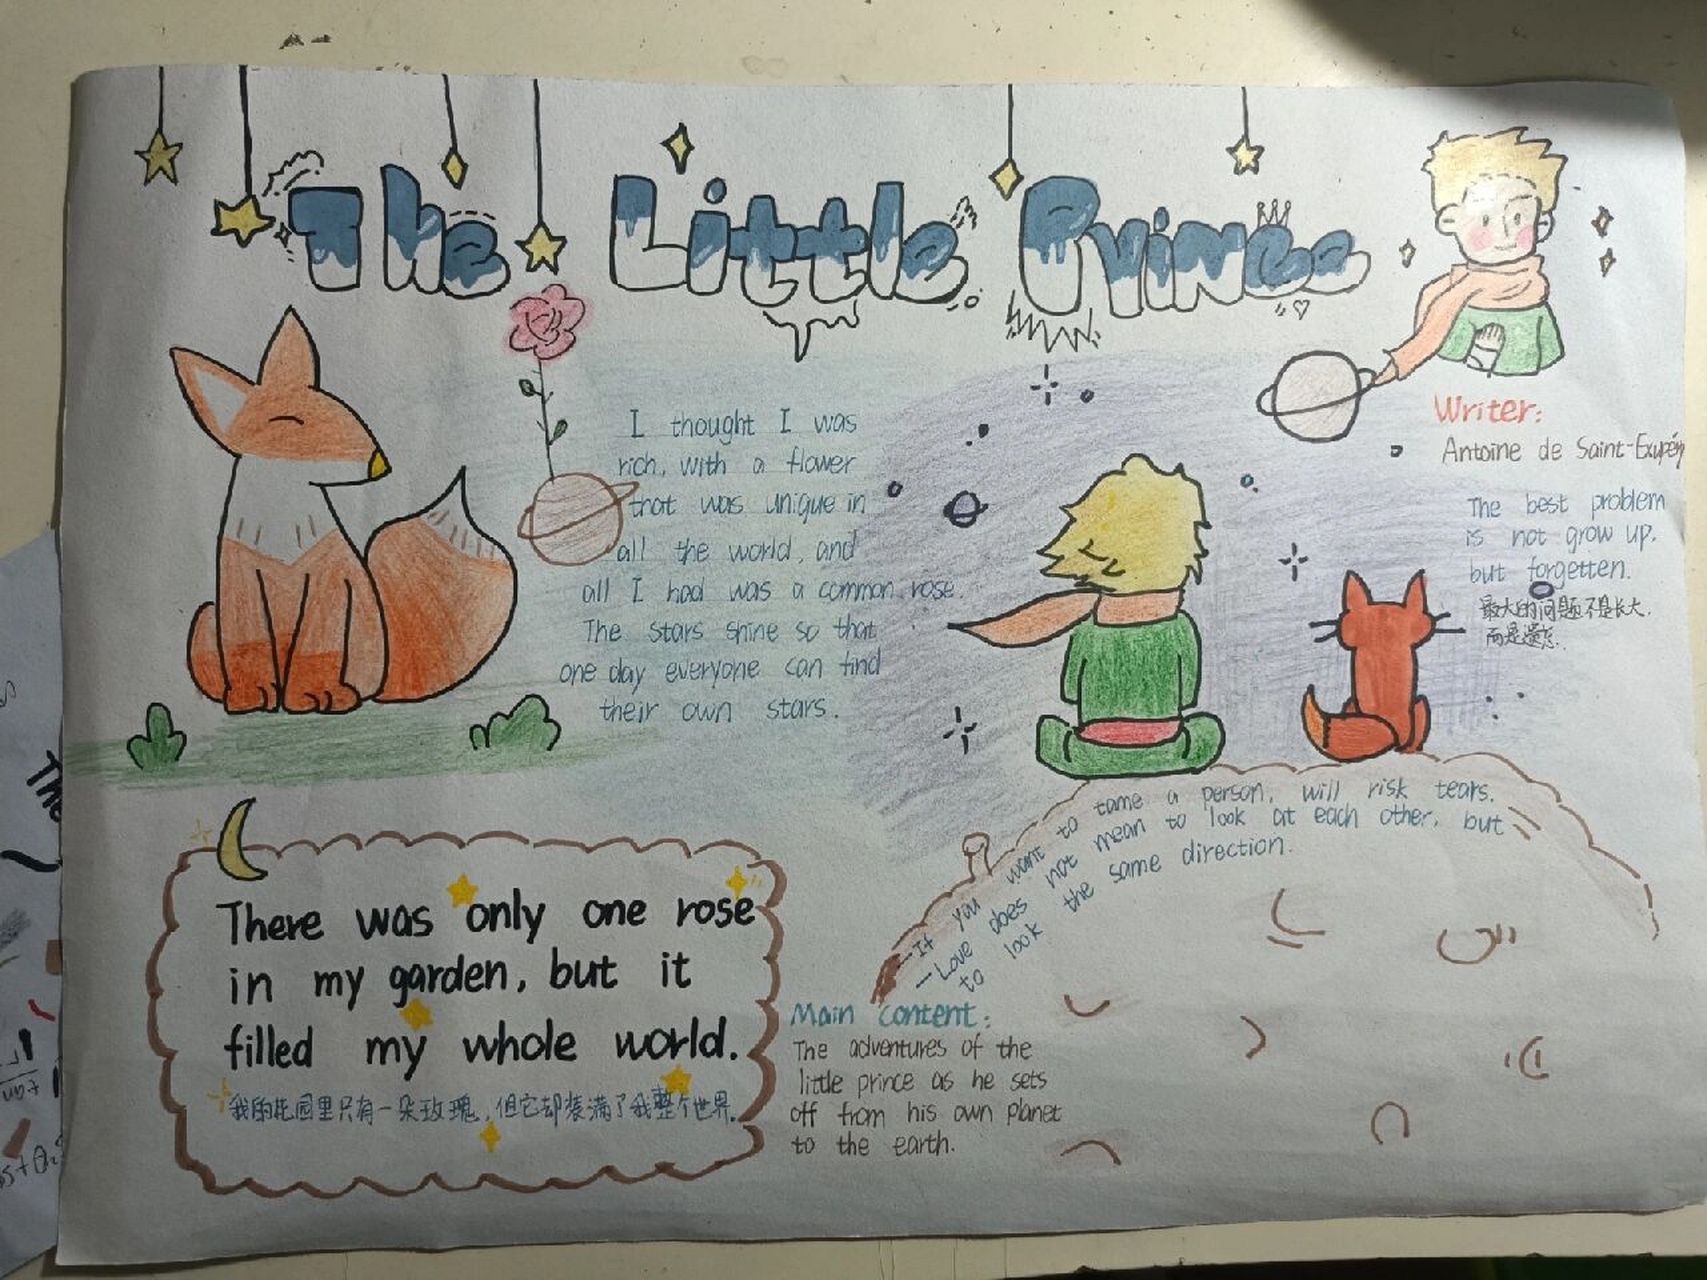 The Little Prince
I thought I was
rich, with a flower
that was unique in
all the world, and
all I had was a common rose.
The stars shine so that
one day everyone can find
their own stars.
Writer:
Antoine de Saint-Exupéry
The best problem
is not grow up.
but forgetten.
最大的问题不是长大,
而是遗忘.
—If you want to tame a person, will risk tears.
—Love does not mean to look at each other, but
to look the same direction.
There was only one rose
in my garden, but it
filled my whole world.
我的花园里只有一朵玫瑰,但它却装满了我整个世界.
Main content:
The adventures of the
little prince as he sets
off from his own planet
to the earth.
The